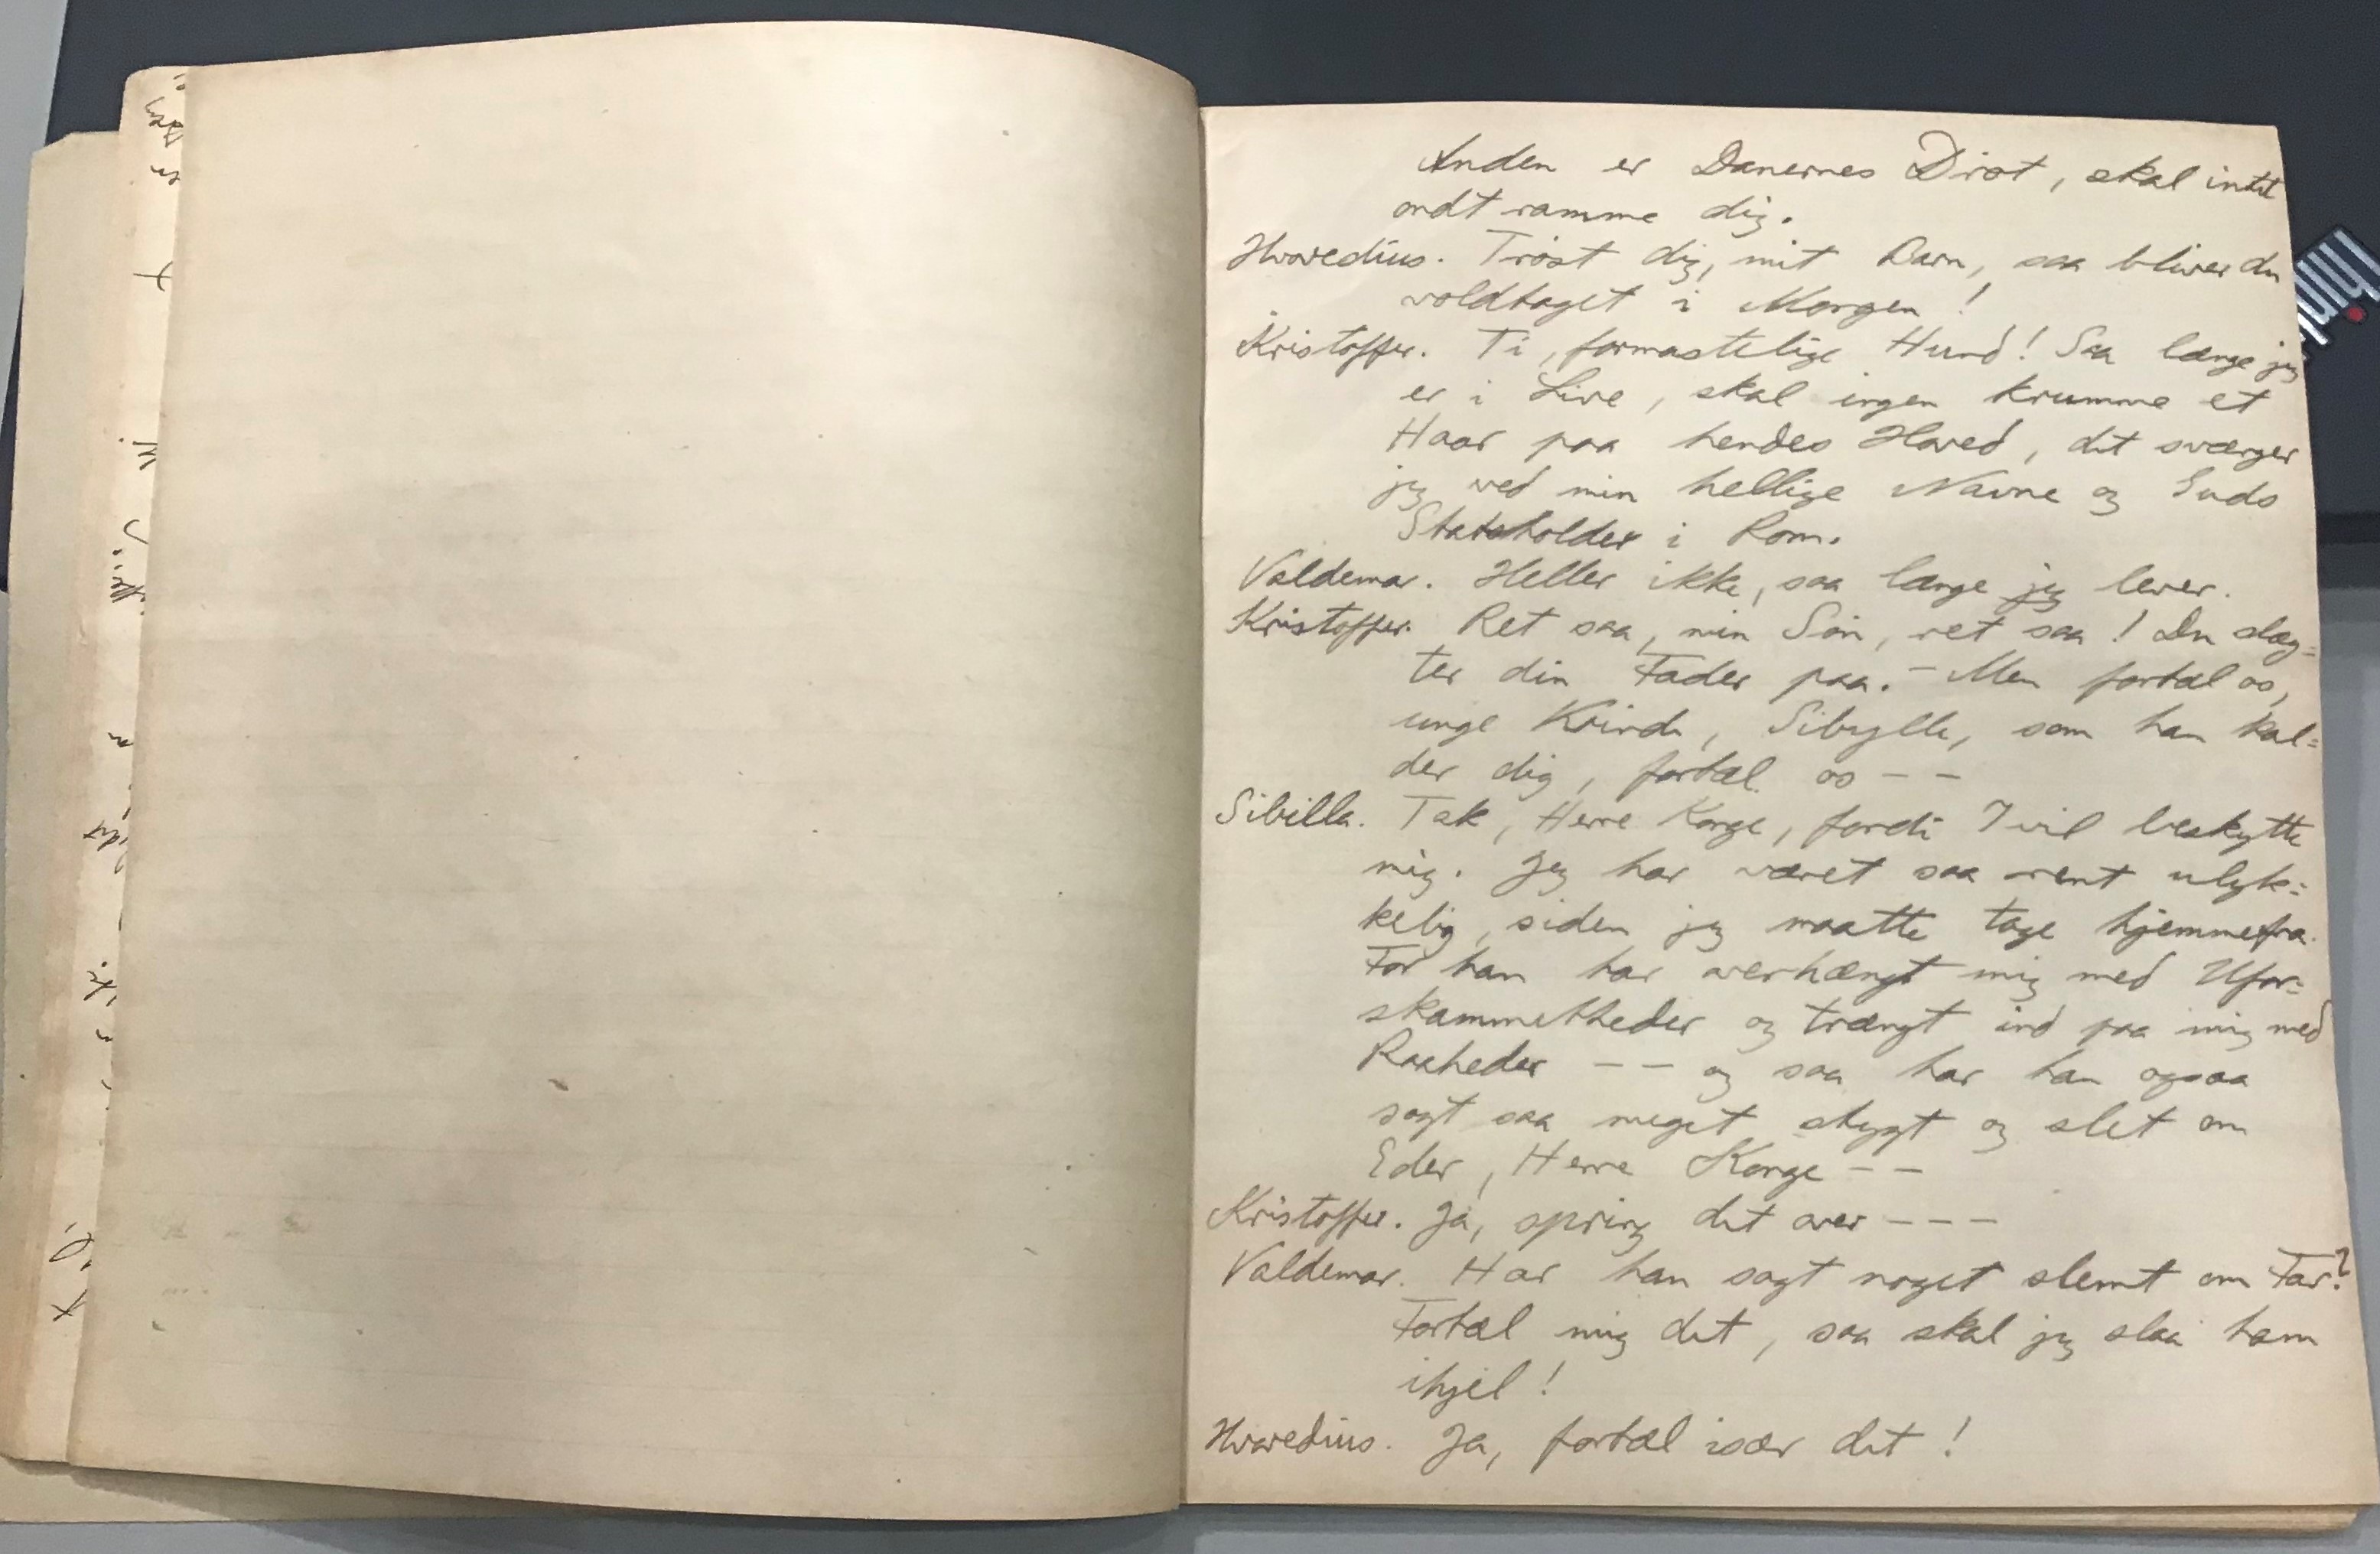 Anden er Danernes Drot, skal intet
ondt ramme dig.
Hvovedius. Trøst dig, mit Barn, saa bliver du
voldtaget i Morgen!
Kristoffer. Ti, formastelige Hund! Saa længe jeg
er i Live, skal ingen krumme et
Haar paa hendes Hoved, det sværger
jeg ved min hellige Navne og Guds
Statholder i Rom.
Valdemar. Heller ikke, saa længe jeg lever.
Kristoffer. Ret saa, min Søn, ret saa! Du slæg=
ter din Fader paa. - Men fortæl os,
unge Kvinde, Sibylle, som han kal=
der dig, fortæl os - -
Sibilla. Tak, Herre Konge, fordi I vil beskytte
mig. Jeg har været saa rent ulyk=
kelig, siden jeg maatte tage hjemmefra.
For han har overhængt mig med Ufor=
skammetheder og trængt ind paa mig med
Raaheder - - og saa har han ogsaa
sagt saa meget stygt og slet om
Eder, Herre Konge - -
Kristoffer. Ja, spring det over - - -
Valdemar. Har han sagt noget slemt om Far?
Fortæl mig det, saa skal jeg slaa ham
ihjel!
Hvovedius. Ja, fortæl især det!